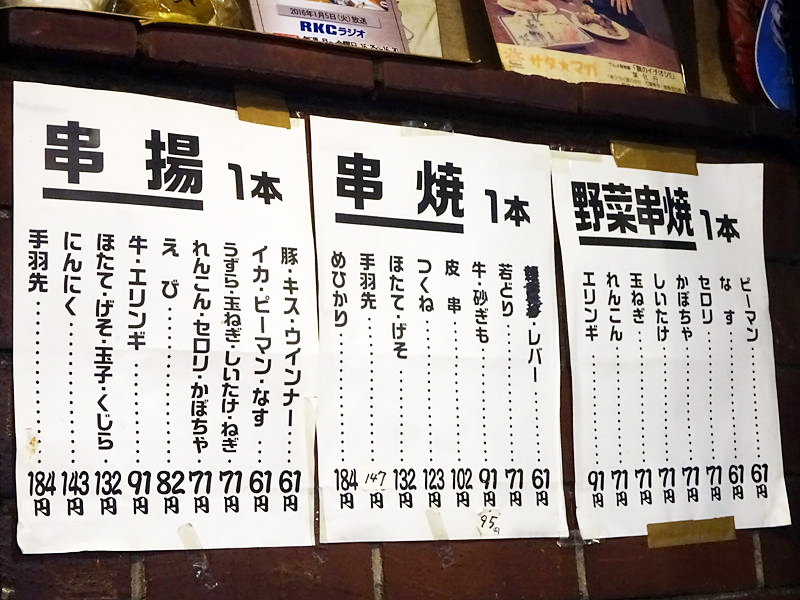 2016年1月5日(火)放送
RKCラジオ
サタ★マガ
串揚 1本
豚・キス・ウインナー 61円
イカ・ピーマン・なす 61円
うずら・玉ねぎ・しいたけ・ねぎ 71円
れんこん・セロリ・かぼちゃ 71円
えび 82円
牛・エリンギ 91円
ほたて・げそ・玉子・くじら 132円
にんにく 143円
手羽先 184円
串焼 1本
・レバー 61円
若どり 71円
牛・砂ぎも 91円
95円
皮串 102円
つくね 123円
ほたて・げそ 132円
手羽先 147円
めひかり 184円
野菜串焼 1本
ピーマン 61円
なす 61円
セロリ 71円
かぼちゃ 71円
しいたけ 71円
玉ねぎ 71円
れんこん 71円
エリンギ 91円